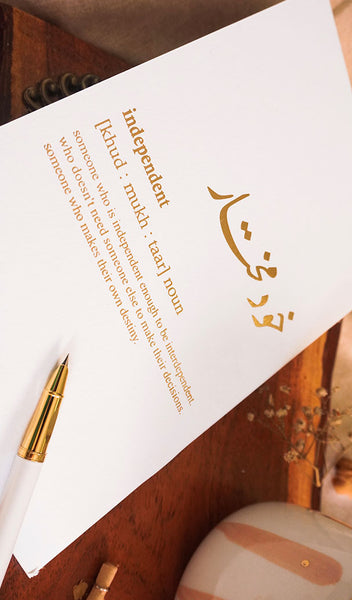 خود مختار
independent
[khud : mukh : taar] noun
someone who is independent enough to be interdependent.
who doesn't need someone else to make their decisions.
someone who makes their own destiny.